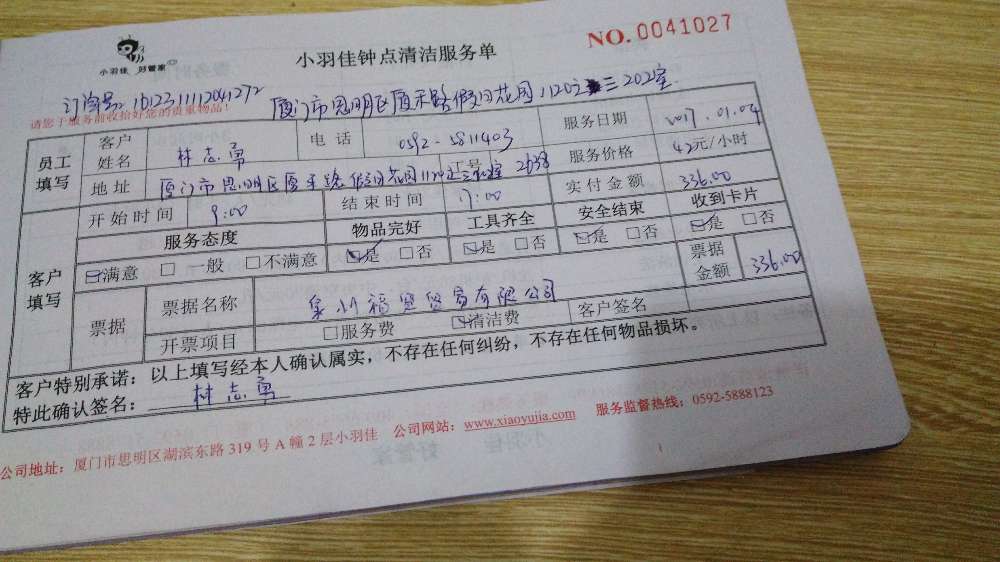 小羽佳 好管家
小羽佳钟点清洁服务单
NO.0041027
订单号:161231111204127 2
厦门市思明区厦禾路假日花园 三202室.
请您于服务前收拾好您的贵重物品!
员工填写 客户姓名 林志勇 电话 0592-5811403 服务日期 2017.01.04
地址 厦门市思明区厦禾路假日花园 工号 2638 服务价格 42元/小时
开始时间 9:00 结束时间 17:00 实付金额 336.00
客户填写 服务态度 物品完好 工具齐全 安全结束 收到卡片
☑满意 □一般 □不满意 ☑是 □否 ☑是 □否 ☑是 □否 ☑是 □否
票据 票据名称 泉州福 贸易有限公司 票据金额 336.00
开票项目 □服务费 ☑清洁费 客户签名
客户特别承诺:以上填写经本人确认属实,不存在任何纠纷,不存在任何物品损坏。
特此确认签名: 林志勇
公司地址:厦门市思明区湖滨东路 319 号 A 幢 2 层小羽佳 公司网站:www.xiaoyujia.com 服务监督热线:0592-5888123